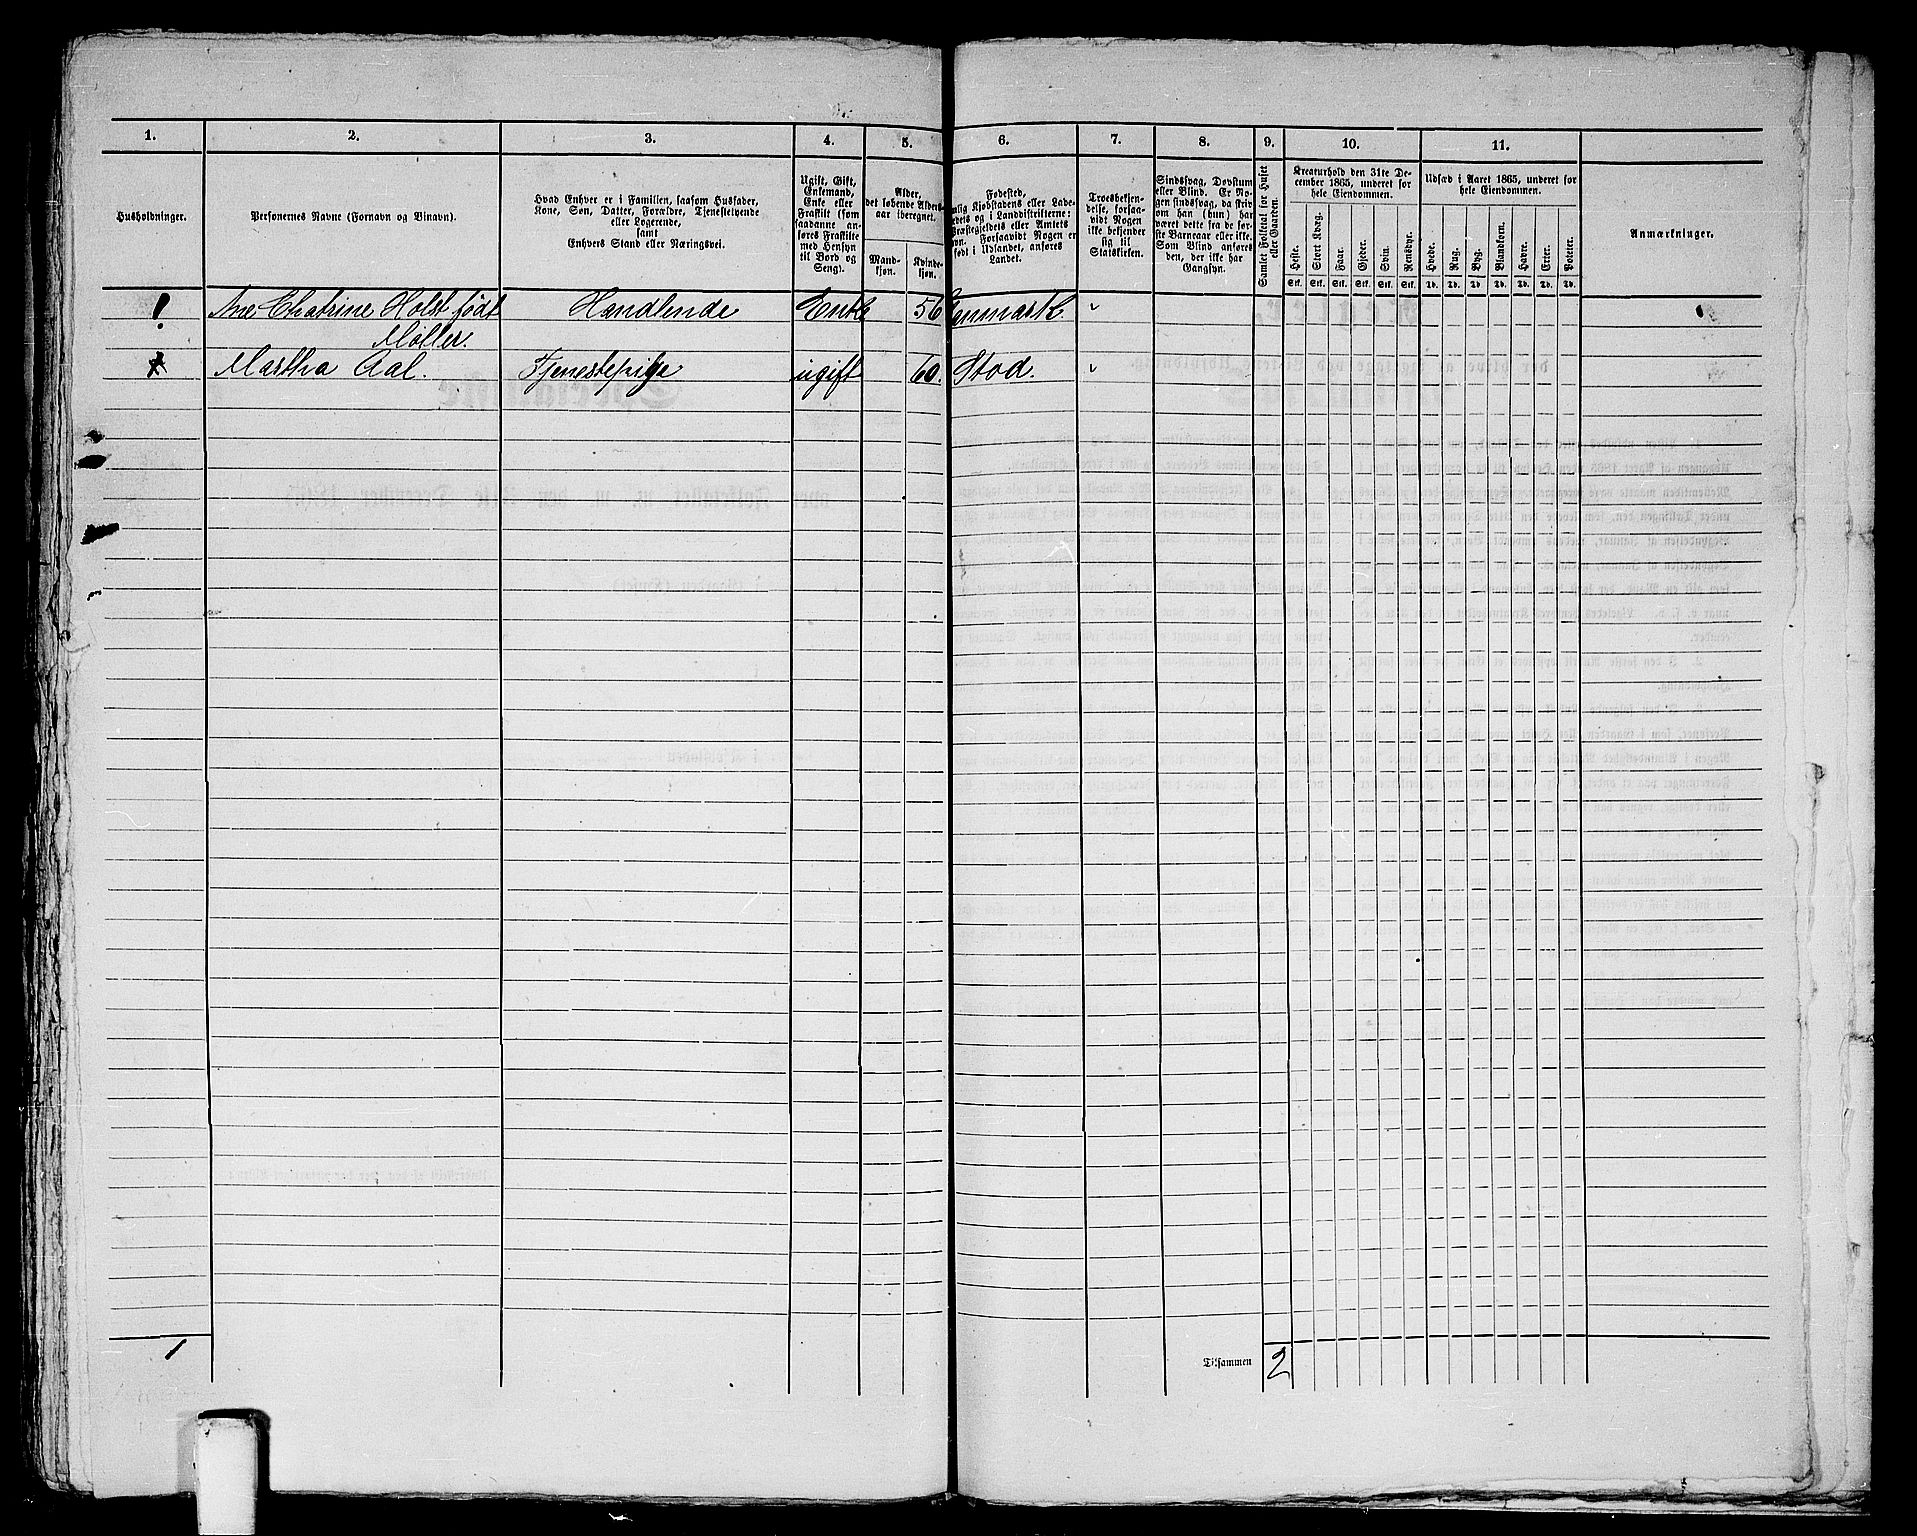 1. 2. 3. 4. 5. 6. 7. 8. 9. 10. 11.
Husholdninger.
Personernes Navne (Fornavn og Vinavn).
Hvad Enhver er i Familien, saasom Husfader,
Kone, Søn, Datter, Forældre, Tjenestetyende
eller Logerende,
samt
Enhvers Stand eller Næringsvei.
Ugift, Gift,
Enkemand,
Enke eller
Fraskilt (som
saadanne an-
føres Fraskilte
med Hensyn
til Bord og
Seng).
Alder,
det løbende Alders-
aar iberegnet.
Mand-
kjøn.
Kvinde-
kjøn.
Fødested,
Kjøbstadens eller Lade-
og i Landdistrikterne:
Præstegjeldets eller Amtets
Forsaavidt Nogen er
født i Udlandet, anføres
Landet.
Troesbekjen-
delse, forsaa-
vidt Nogen
ikke bekjender
sig til
Statskirken.
Sindssvag, Døvstum
eller Blind. Er No-
gen sindssvag, da skriv
om han (hun) har
været dette fra de før-
ste Barneaar eller ikke.
Som Blind anføres
den, der ikke har
Gangsyn.
Samlet Folketal for Huset
eller Gaarden.
Kreaturhold den 31te De-
cember 1865, underet for
hele Eiendommen.
Heste. Stort Kvæg. Faar. Gjeder. Svin. Rensdyr.
Stk. Stk. Stk. Stk. Stk. Stk.
Udsæd i Aaret 1865, underet for
hele Eiendommen.
Hvede. Rug. Byg. Blandkorn. Havre. Erter. Poteter.
Td. Td. Td. Td. Td. Td. Td.
Anmærkninger.
Ane Chatrine Holst født Handlende Enke 56 Danmark
Møller.
Martha Aal. Tjenestepige ugift 60. Stod.
1 Tilsammen 2